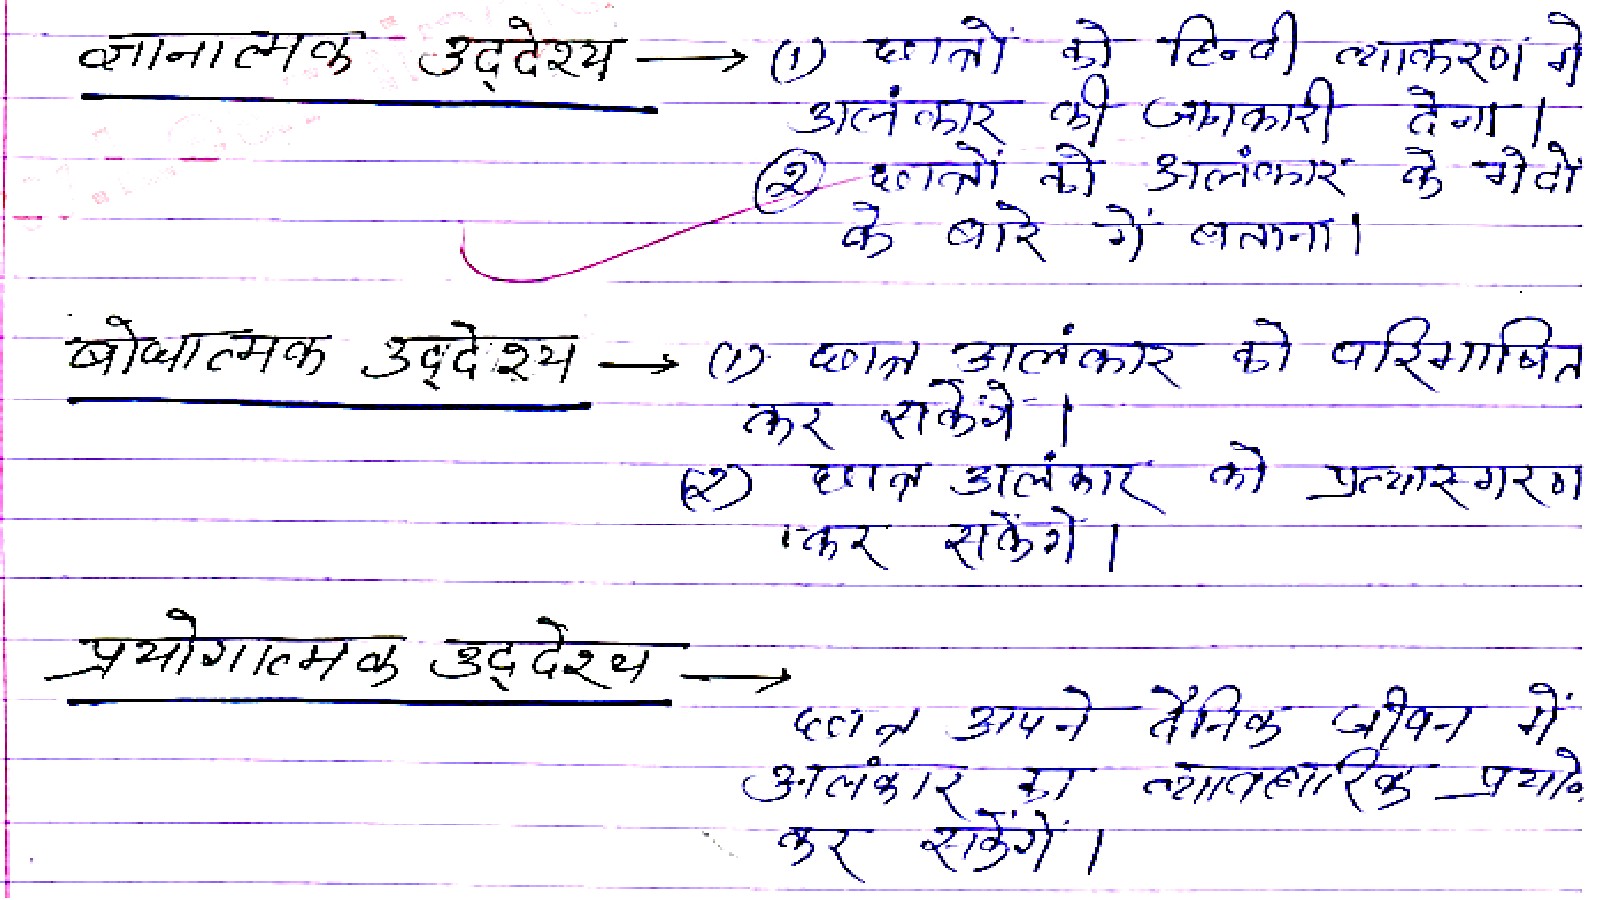 ज्ञानात्मक उद्देश्य → (1) छात्रों को हिन्दी व्याकरण में
अलंकार की जानकारी देना।
(2) छात्रों को अलंकार के भेदों
के बारे में बताना।
बोधात्मक उद्देश्य → (1) छात्र अलंकार को परिभाषित
कर सकेंगे।
(2) छात्र अलंकार को प्रत्यास्मरण
कर सकेंगे।
प्रयोगात्मक उद्देश्य →
छात्र अपने दैनिक जीवन में
अलंकार का व्यावहारिक प्रयोग
कर सकेंगें।